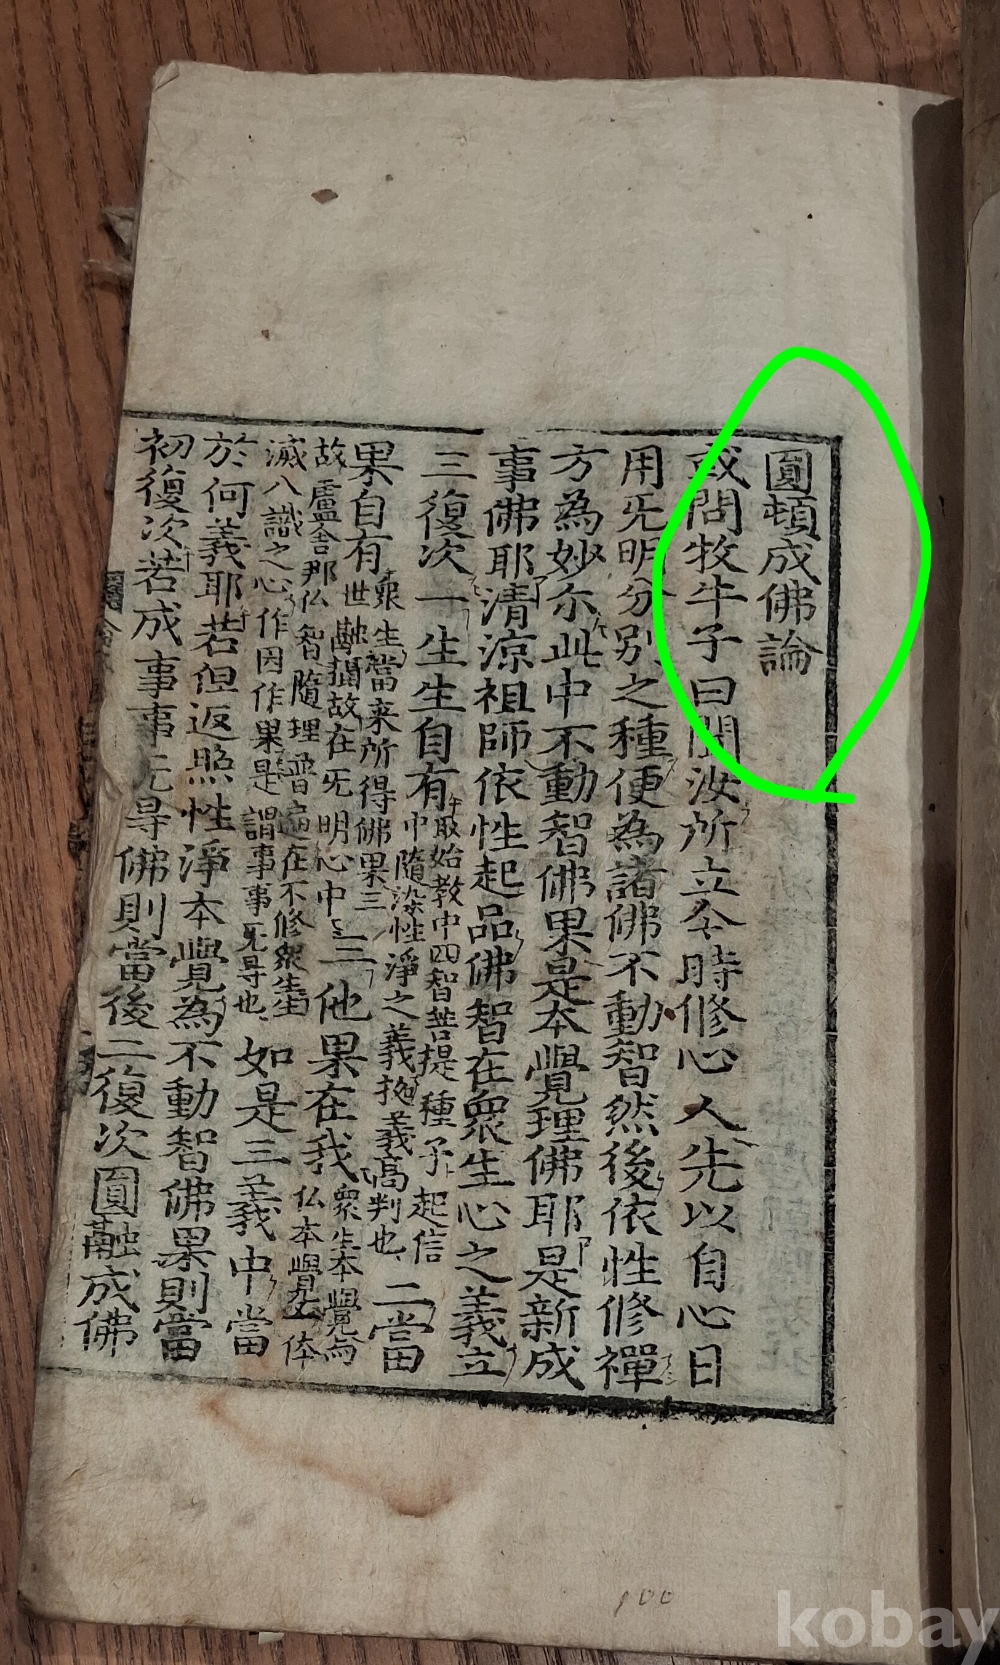 圓頓成佛論
或問牧牛子曰聞汝所立今時修心人先以自心日
用旡明分別之種便為諸佛不動智然後依性修禪
方為妙尒此中不動智佛果是本覺理佛耶是新成
事佛耶清涼祖師依性起品佛智在衆生心之義立
三復次一生生自有取始教中四智菩提種子起信中隨染性淨之義義高判也二當
果自有衆生當来所得佛果三世融攝故在旡明心中三他果在我衆生本覺与仏本覺一体
故盧舍那仏智隨理普遍在不修衆生滅八識之心作因作果是謂事事旡㝵也如是三義中當
於何義耶若但返照性淨本覺為不動智佛果則當
初復次若成事事旡㝵佛則當後二復次圓融成佛
100
kobay